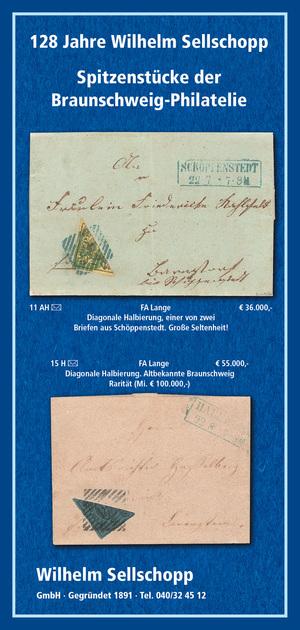 128 Jahre Wilhelm Sellschopp
Spitzenstücke der
Braunschweig-Philatelie
An
SCHÖPPENSTEDT
22 7 · 7-8M
Fräulein Friederike
zu
11 AH FA Lange € 36.000,-
Diagonale Halbierung, einer von zwei
Briefen aus Schöppenstedt. Große Seltenheit!
15 H FA Lange € 55.000,-
Diagonale Halbierung. Altbekannte Braunschweig
Rarität (Mi. € 100.000,-)
Wilhelm Sellschopp
GmbH · Gegründet 1891 · Tel. 040/32 45 12